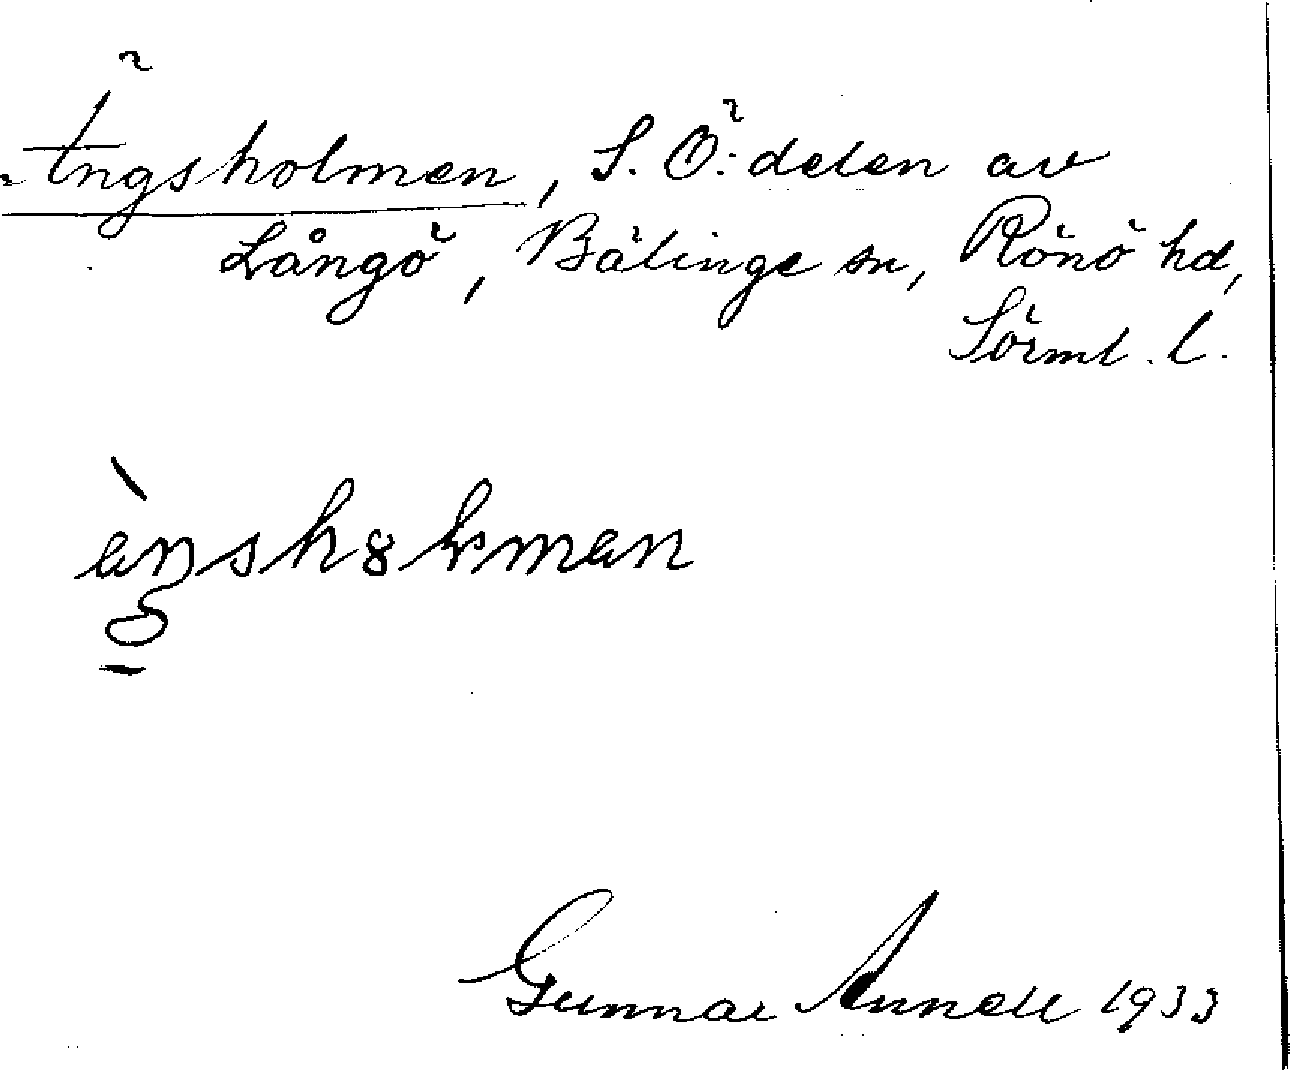 Ängsholmen, S. Ö. delen av
Långö, Bälinge sn, Rönö hd,
Sörml. l.
Gunnar Annell 1933